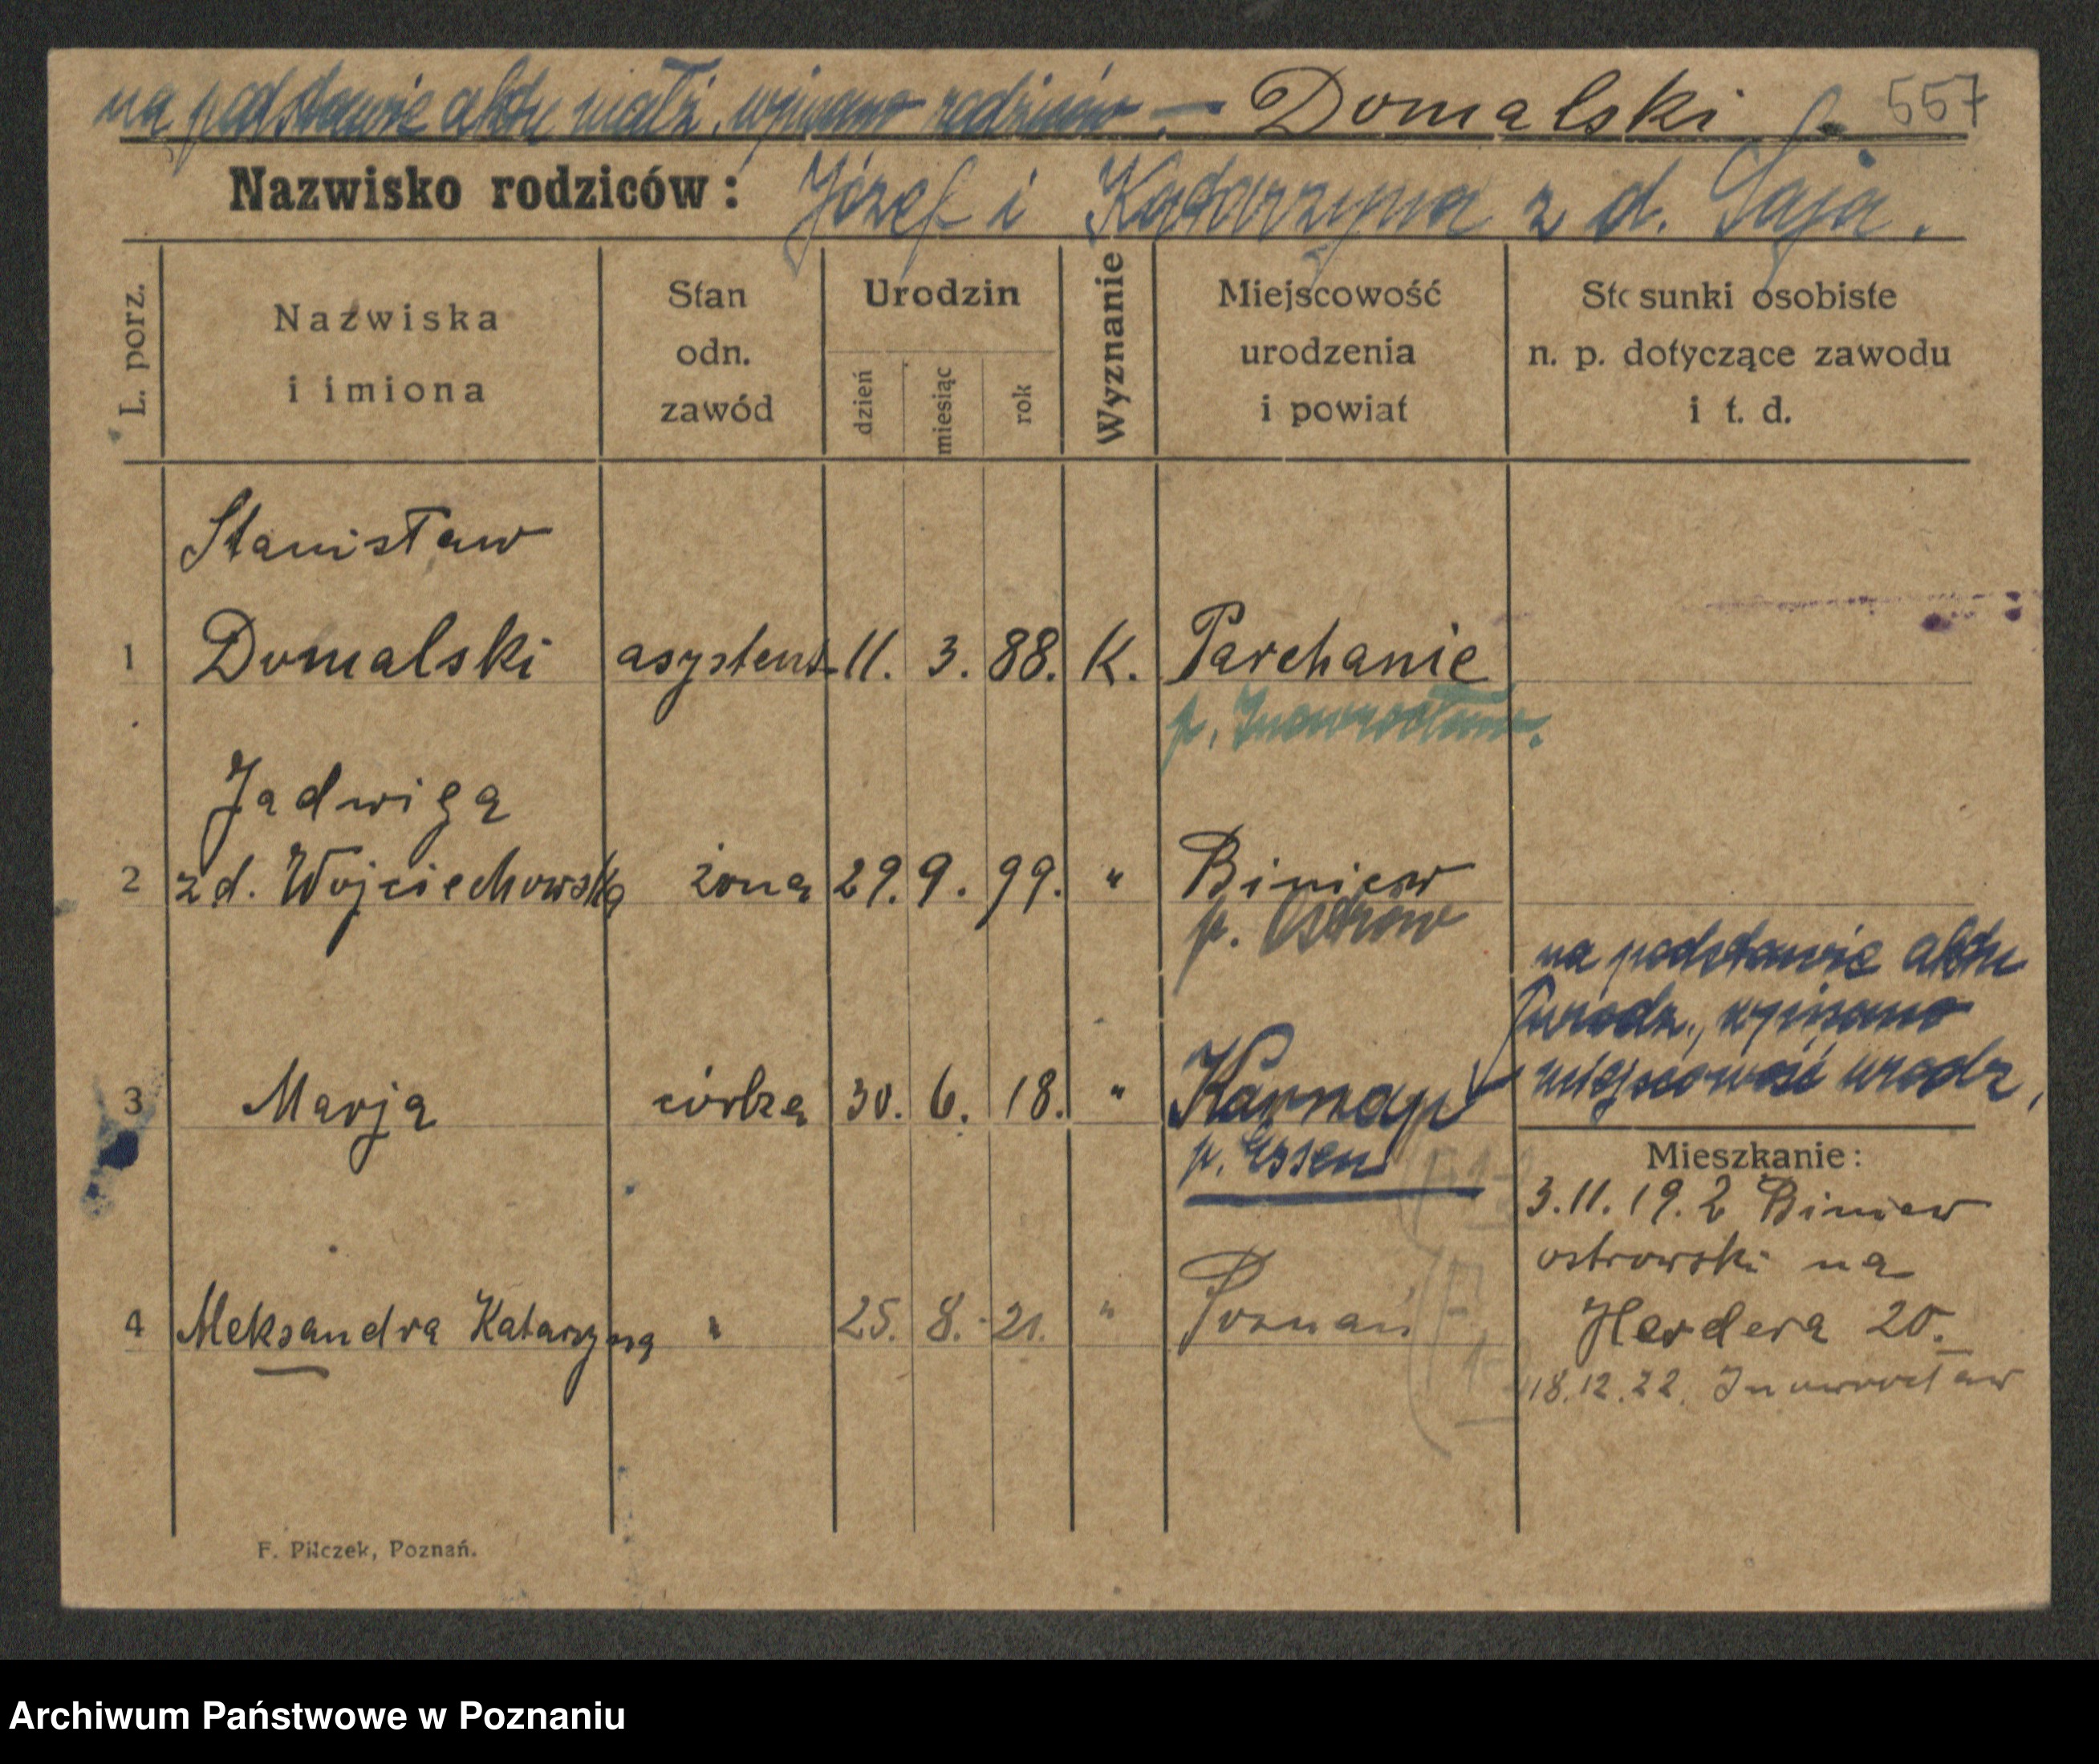 na podstawie aktu małż. wpisano rodziców. — Domalski 557
Nazwisko rodziców: Józef i Katarzyna z d. Saja.
L. porz.
Nazwiska i imiona
Stan odn. zawód
Urodzin
dzień
miesiąc
rok
Wyznanie
Miejscowość urodzenia i powiat
Stosunki osobiste n. p. dotyczące zawodu i t. d.
Stanisław
1 Domalski asystent 11. 3. 88. K. Parchanie
p. Inowrocław.
Jadwiga
2 z d. Wojciechowska żona 29. 9. 99. " Biniew
p. Ostrów
na podstawie aktu
urodz., wpisano
miejscowość urodz,
3 Marja córka 30. 6. 18. " Karnap
p. Essen
Mieszkanie:
3.11.19. z Biniew
ostrowski na
4 Aleksandra Katarzyna " 25. 8. 21. " Poznań
Herdera 20.
18.12.22. Inowrocław
F. Pilczek, Poznań.
Archiwum Państwowe w Poznaniu